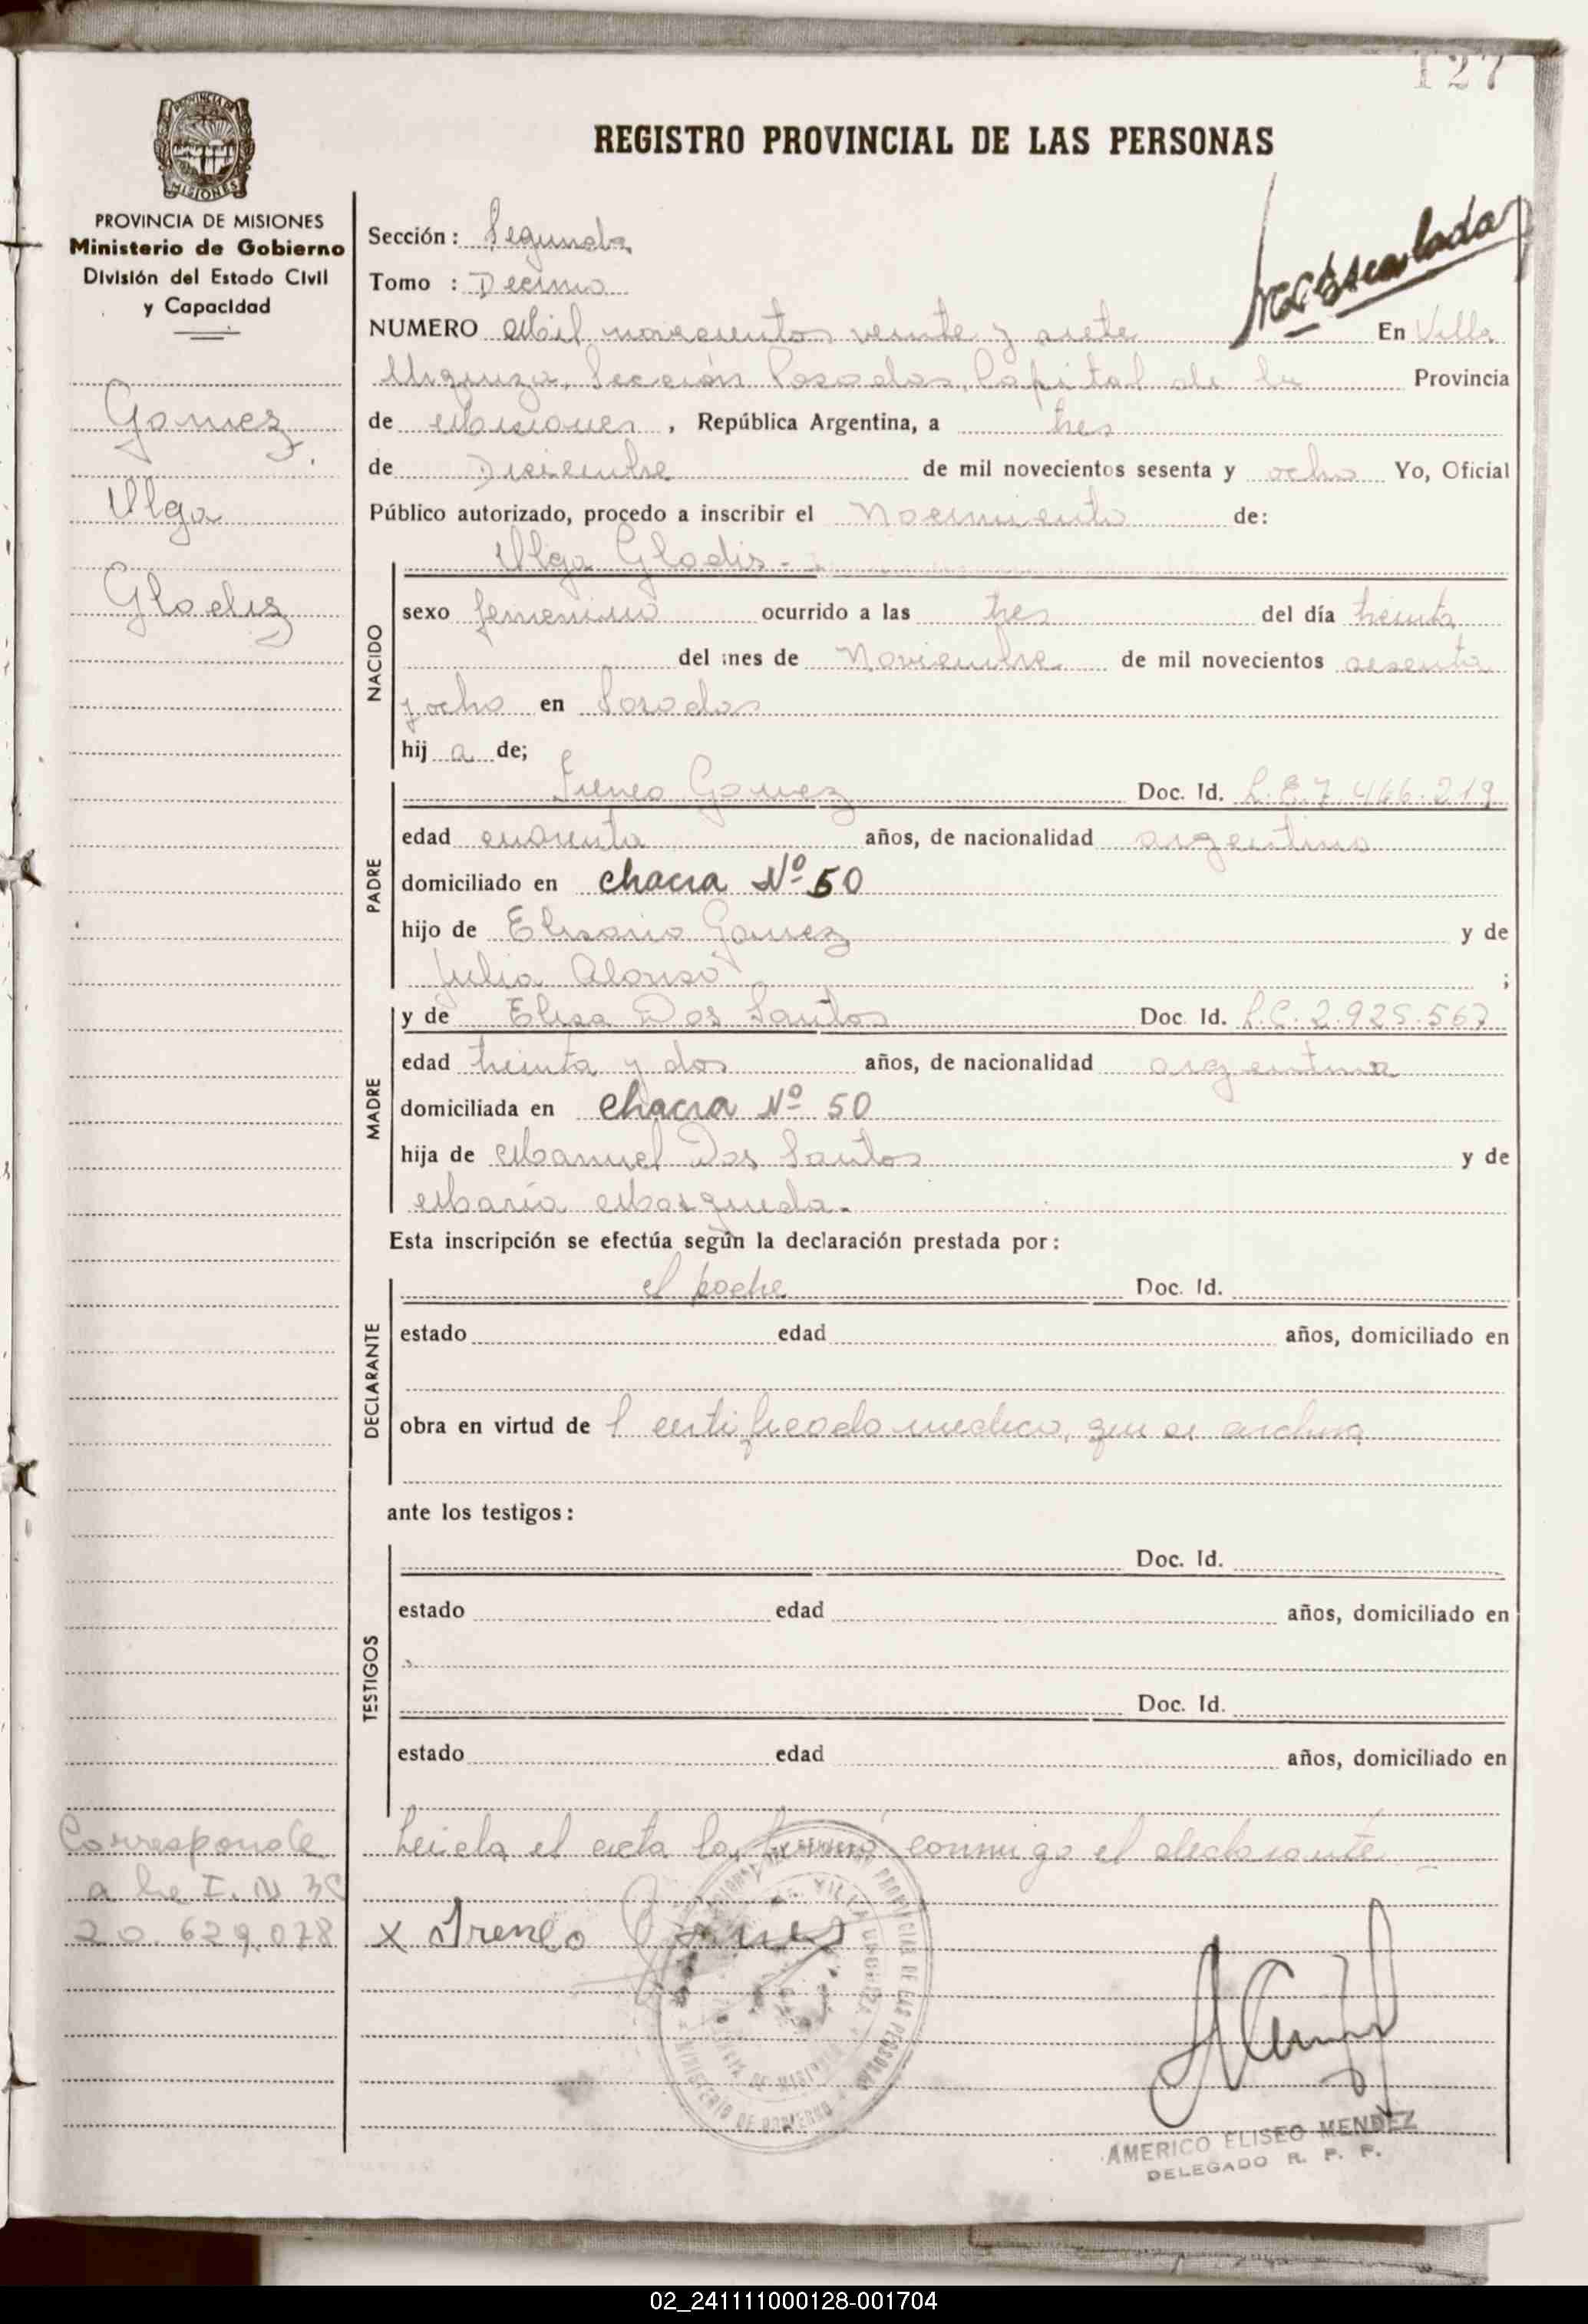 127
PROVINCIA DE MISIONES
Ministerio de Gobierno
División del Estado Civil
y Capacidad
REGISTRO PROVINCIAL DE LAS PERSONAS
Sección: Segunda
Tomo : Decimo
NUMERO Mil novecientos veinte y siete En Villa
Urquiza, Sección Posadas, Capital de la Provincia
de Misiones, República Argentina, a tres
de Diciembre de mil novecientos sesenta y ocho Yo, Oficial
Público autorizado, procedo a inscribir el Nacimiento de:
Gomez
Olga
Gladis
Olga Gladis.-
NACIDO
sexo femenino ocurrido a las tres del día treinta
del mes de Noviembre de mil novecientos sesenta
y ocho en Posadas
hij a de;
PADRE
Ireneo Gomez Doc. Id. L.E. 7.466.219
edad cuarenta años, de nacionalidad argentino
domiciliado en chacra Nº 50
hijo de Elisario Gomez y de
Julia Alonso ;
MADRE
y de Elisa Dos Santos Doc. Id. L.C. 2.925.567
edad treinta y dos años, de nacionalidad argentina
domiciliada en chacra Nº 50
hija de Manuel Dos Santos y de
Maria Masqueda.
Esta inscripción se efectúa según la declaración prestada por:
DECLARANTE
el padre Doc. Id.
estado edad años, domiciliado en
obra en virtud de l certificado medico, que se archiva
ante los testigos:
TESTIGOS
Doc. Id.
estado edad años, domiciliado en
Doc. Id.
estado edad años, domiciliado en
Leida el acta la firma conmigo el declarante
Corresponde
a la I. N
20.629.078
x Ireneo Gomes
AMERICO ELISEO MENDEZ
DELEGADO R. P. P.
02_241111000128-001704